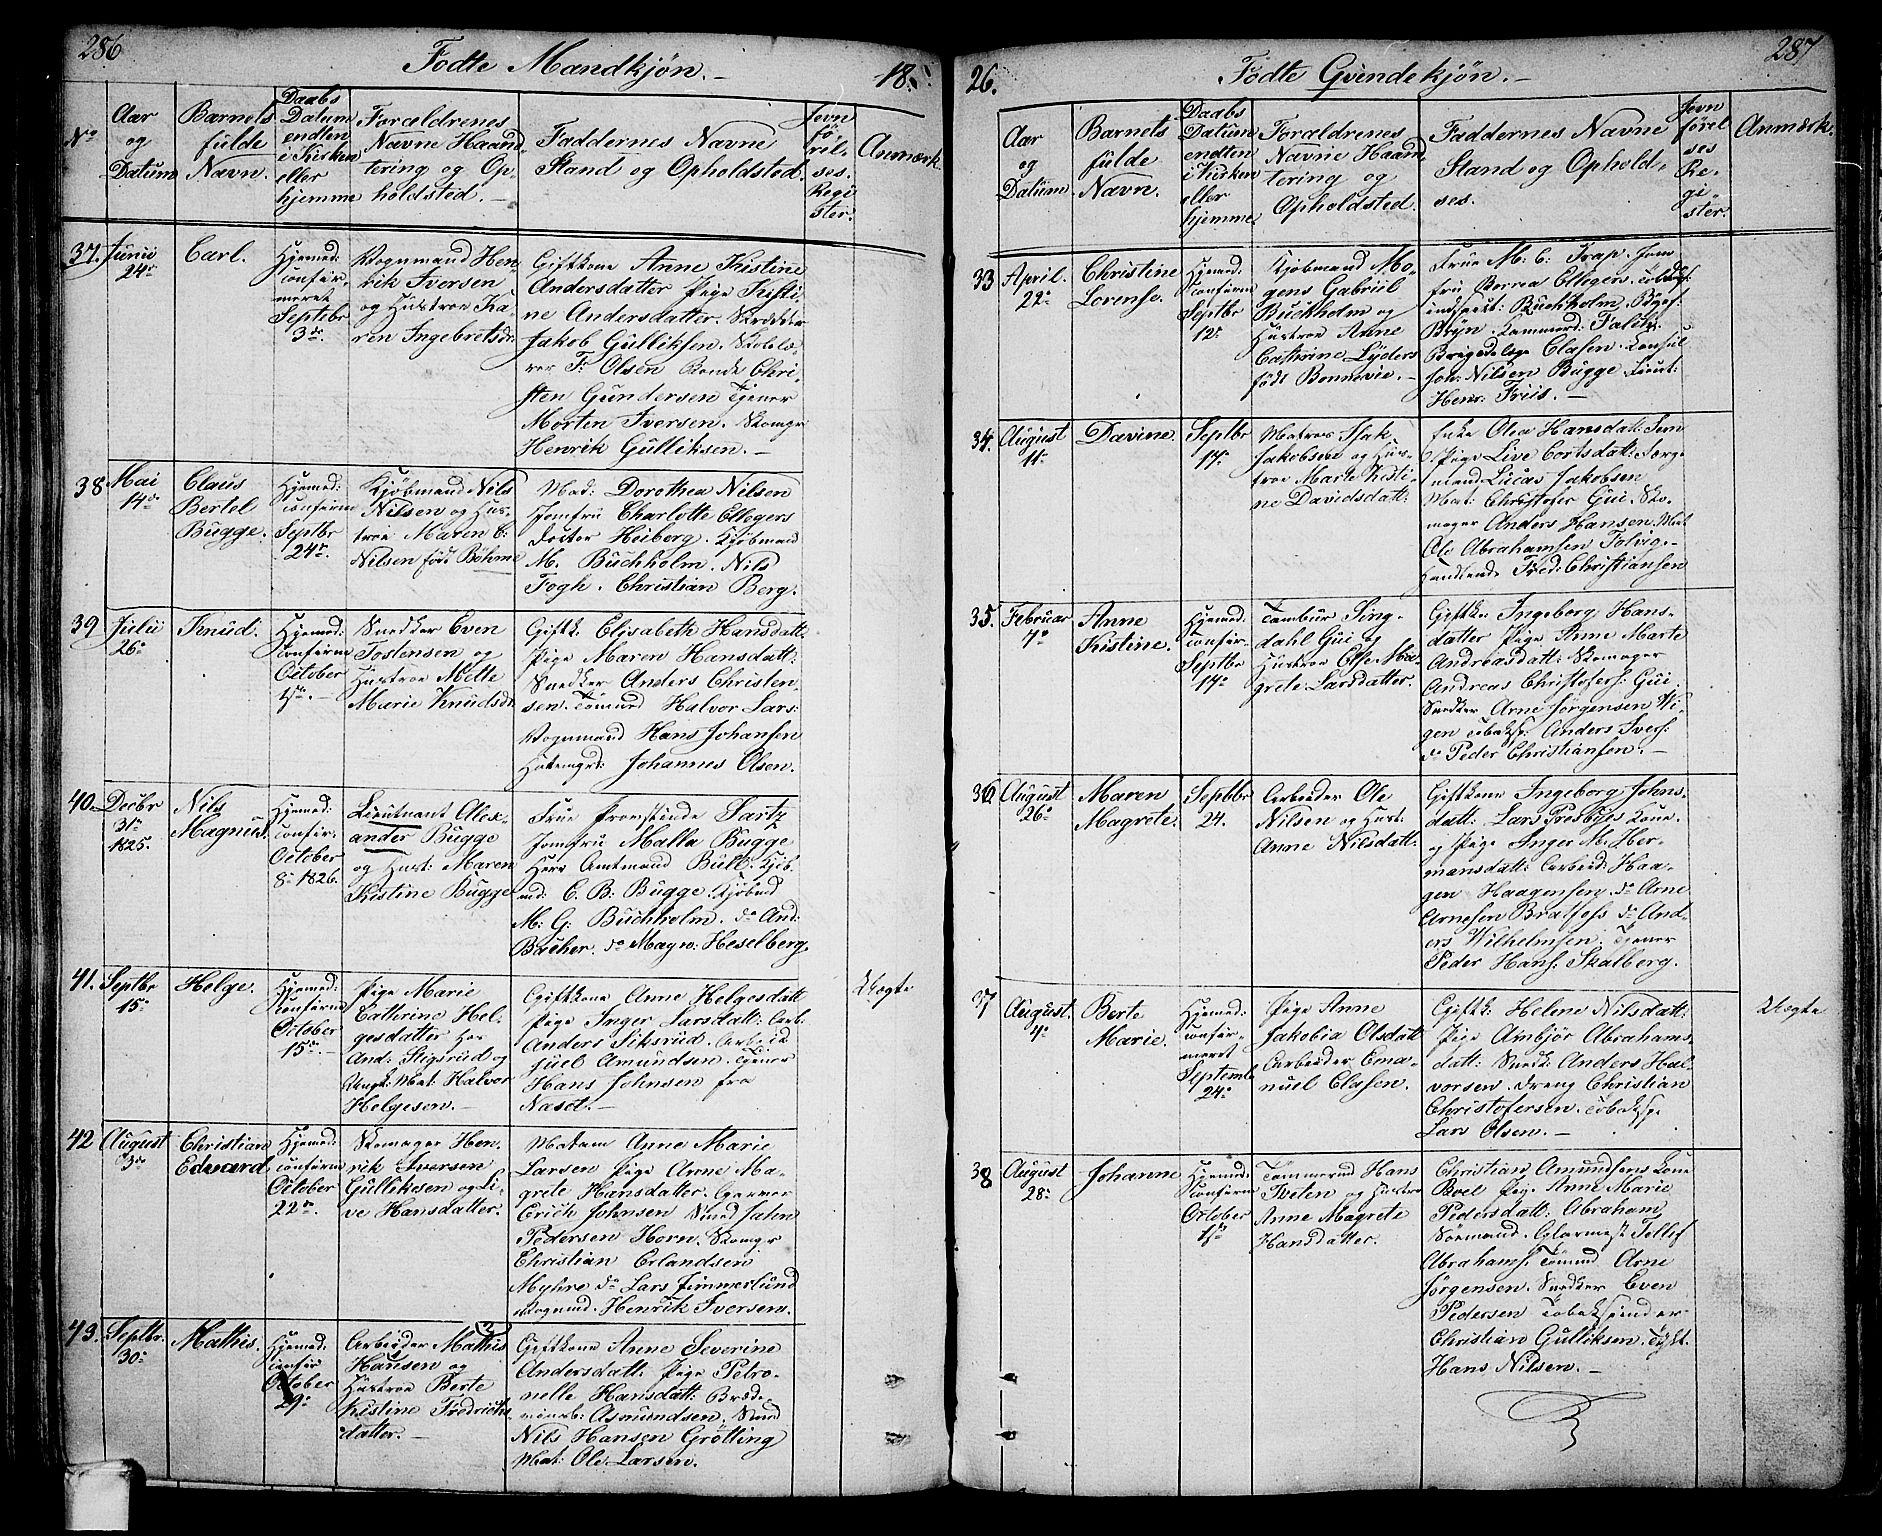 286
Fødte Mandkjøn. – 18
No
Aar
og
Datum
Barnets
fulde
Navn.
Daabs
Datum
endten
i Kirken
eller
hjemme
Foræeldrenes
Navne Haand
tering og Op
holdsted. –
Faddernes Navne
Stand og Opholdsted.
Jevn
fö
rel
ses
Regi
ster.
Anmærk.
37.
Junii
24de
Carl.
Hjemed:
confir
meret
Septbr
3de
Vognmand Hen
rik Iversen
og Hustroe Ka
ren Ingebretsdr
Giftkone Anne Kistine
Andersdatter Pige Kisti
ne Andersdatter. Skrædder
Jakob Gulliksen. Skolelæ
rer T: Olsen Bonde Chri
sten Gundersen Tjener
Morten Iversen. Skomgr
Henrik Gulliksen. –
38
Mai
14de
Claus
Bertel
Bugge.
Hjemed:
confirm
Septbr
24de
Kjöbmand Nils
Nilsen og Hus
troe Maren C:
Nilsen föd Böhme
Mad: Dorothea Nilsen
Jomfru Charlotte Ellegers
Docter Heiberg. Kjöbmand
M. Buchholm. Nils
Fogh. Christian Berg.
39
Julii
26de
Knud.
Hjemed:
confirm
October
1ste
Snedker Even
Tostensen og
Hustroe Mette
Marie Knudsdr
Giftk. Elisabeth Hansdatt.
Pige Maren Hansdatt:
Snedker Anders Christen
sen. Tömmd Halvor Lars:
Vognmand Hans Johansen
Johannes Olsen.
40.
Decbr
31te
1825.
Nils
Magnus.
Hjemed:
confir.
October
8de 1826.
Lieutnant Alex
ander Bugge
og Hust: Maren
Kistine Bugge
Frue Provstinde Sartz
Jomfru Malla Bugge
Herr Amtmand Bull. Kjöb
md: C. B: Bugge. Kjöbmd
M: G: Buchholm. do And:
Bacher. do Magn: Heselberg.
41.
Septbr
15de
Helge.
Hjemed:
Konfirm
October
15de
Pige Marie
Cathrine Hel
gesdatter hos
And: Stigsrud og
Ungk: Mat: Halvor
Helgesen. –
Giftkone Anne Helgesdatt
Pige Inger Larsdatt: Arb.
Anders Siksrud. Arbeid
Juel Amundsen. Tjener
Hans Johnsen fra
Næset. –
Uægte
42
August
3de
Christian
Edvard.
Hjemed:
confirm
October
22de
Skomager Hen
rik Iversen
Gulliksen og Li
ve Hansdatter.
Madam Anne Marie
Larsen Pige Anne Ma
grete Hansdatter. Garver
Erich Johnsen Smed John
Pedersen Horn. Skomgr
Christian Erlandsen
Myhre do Lars Jimmerlund
Vognmd. Henrik Iversen.
43.
Septbr.
30te
Mathis.
Hjemed:
confir
October
29de
Arbeider Mathis
Hansen og
Hustroe Berte
Kistine Fredrichs
datter. –
Giftkone Anne Severine
Andersdatt. Pige Petro
nelle Hansdatt: Bræde
Asmundsen. Smed
Nils Hansen Grötting
Mat: Ole Larsen.
26.
Födte Qvindekjön. –
287
Aar
og
Datum
Barnets
fulde
Navn.
Daabs
Datum
endten
i Kirken
eller
hjemme
Foraldrenes
Navne Haan
tering og
Opholdsted.
Faddernes Navne
Stand og Opholds
ses.
Jevn
förel
ses
Re
gi
ster.
Anmærk.
33
April.
22de
Christine
Lorense.
Hjemed:
confirm
Septbr
12te
Kjöbmand Mo
gens Gabriel
Buchholm og
Hustroe Anne
Cathrine Lyders
född Bonnevie. –
Frue M. C: Trap. Jom
fru Benna Ellegers.
Buchholm.
Bryn. Kammerd: Falch
Clasen. Konsul
Joh: Nilsen Bugge. Lieut:
Henr: Friis. –
34.
August
11te
Davine.
Septbr
17de
Matros Isak
Jakobsen og Hus
troe Marte Kisti
ne Davidsdatt:
Enke Olea Hansdatt: Jern
Pige Live Cortsdatt: Færge
mand Lucas Jakobsen
Mat: Christofer Gui. Sko
mager Anders Hansen. Mat
Ole Abrahamsen
Handlende Fred: Christiansen
35.
Februar
7de
Anne
Kistine.
Hjemed:
confir.
Septbr
17de
Tambur Sing
dahl Gui og
Hustroe Else Ma
grete Larsdatter.
Giftke Ingeborg Hans
datter Pige Anne Marte
Andreasdatt: Skomager
Andreas Christofers: Gui.
Snedker Arne Jörgensen Vi
gen Tobaksp: Anders Ivers:
do Peder Christiansen. –
36
August
26de
Maren
Magrete.
Septbr
24.
Arbeider Ole
Nilsen og Hust:
Anne Nilsdatt:
Giftkone Ingeborg Johns
datt: Lars Presbyes Kone
og Pige Inger M. Her
mansdatt: Arbeid: Haa
gen Haagensen. do Arne
Arnesen Bratfoss do And
ers Wilhelmsen. Tjener
Peder Hans: Skalberg.
37
August.
4de
Berte
Marie.
Hjemed:
confir
meret
Septemb
24de
Pige Anne
Jakobia Olsdatt
Arbeider Ema
nuel Clasen.
Giftk: Helene Nilsdatt:
Pige Ambjör Abrahams
datt: Snedk: Anders Hal
vorsen. Dreng Christian
Christofersen. Tobaksp.
Lars Olsen. –
Uægte
38
August
28de
Johanne
Hjemed:
confirm
October
1ste
Tömmermd Hans
Tveten og Hustro
Anne Magrete
Hansdatter.
Christian Amundsens Kone
Boel Pige Anne Marie
Pedersdatt: Abraham
Sörmand. Glarmest Tellef
Abrahams: Tömmd Arne
Jörgensen. Snedker Even
Pedersen Tobakspinder
Christian Gulliksen.
Hans Nilsen. –